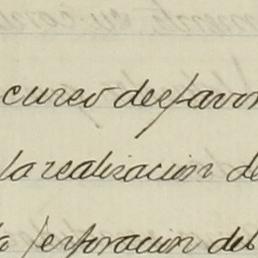 curso desfavor
la realizacion de
la perforacion del